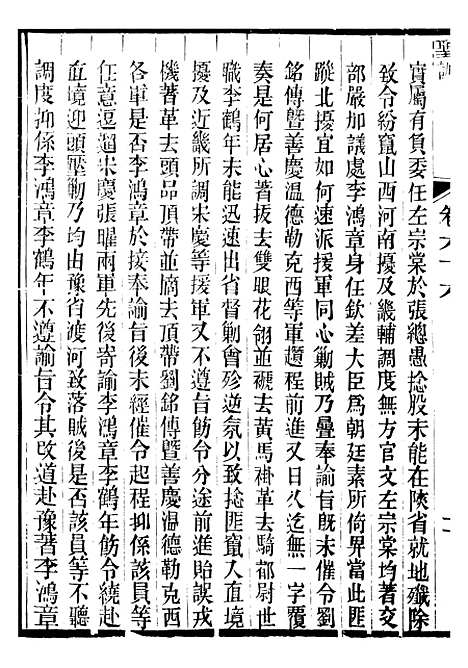 聖訓
卷六十六
實屬有負委任左宗棠於張總愚捻股未能在陝省就地殲除
致令紛竄山西河南擾及畿輔調度無方官文左宗棠均著交
部嚴加議處李鴻章身任欽差大臣爲朝廷素所倚畀當此匪
蹤北擾宜如何速派援軍同心勦賊乃疊奉諭旨催令劉
銘傳暨善慶溫德勒克西等軍趲程前進迄今無一字覆
奏是何居心著拔去雙眼花翎並褫去黃馬褂革去騎都尉世
職李鶴年未能迅速出省督勦會殄逆氛以致捻匪竄入直境
擾及近畿所調宋慶等援軍又不遵旨飭令分途前進貽誤戎
機著革去頭品頂帶並摘去頂帶劉銘傳暨善慶溫德勒克西
各軍是否李鴻章於接奉諭旨後未經催令起程抑係該員等
任意逗遛宋慶張曜兩軍先後寄諭李鴻章李鶴年飭令繞赴
直境迎頭壓勦乃均由豫省渡河致落賊後是否該員等不聽
調度抑係李鴻章李鶴年不遵諭旨令其改道赴豫著李鴻章